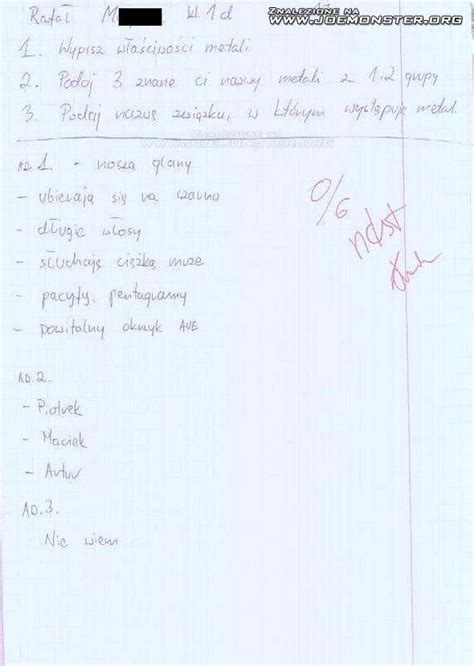 ZNALEZIONE NA
WWW.JOEMONSTER.ORG
Rafał M kl. 1d
1. Wypisz właściwości metali
2. Podaj 3 znane ci nazwy metali z 1 i 2 grupy
3. Podaj nazwę związku, w którym występuje metal.
ZNALEZIONE NA
WWW.JOEMONSTER.ORG
AD.1. - noszą glany
- ubierają się na czarno
- długie włosy
- słuchają ciężką muze
- pacyfy, pentagramy
- powitalny okrzyk AVE
0/6
ndst
AD.2.
- Piotrek
- Maciek
- Artur
AD.3.
Nie wiem